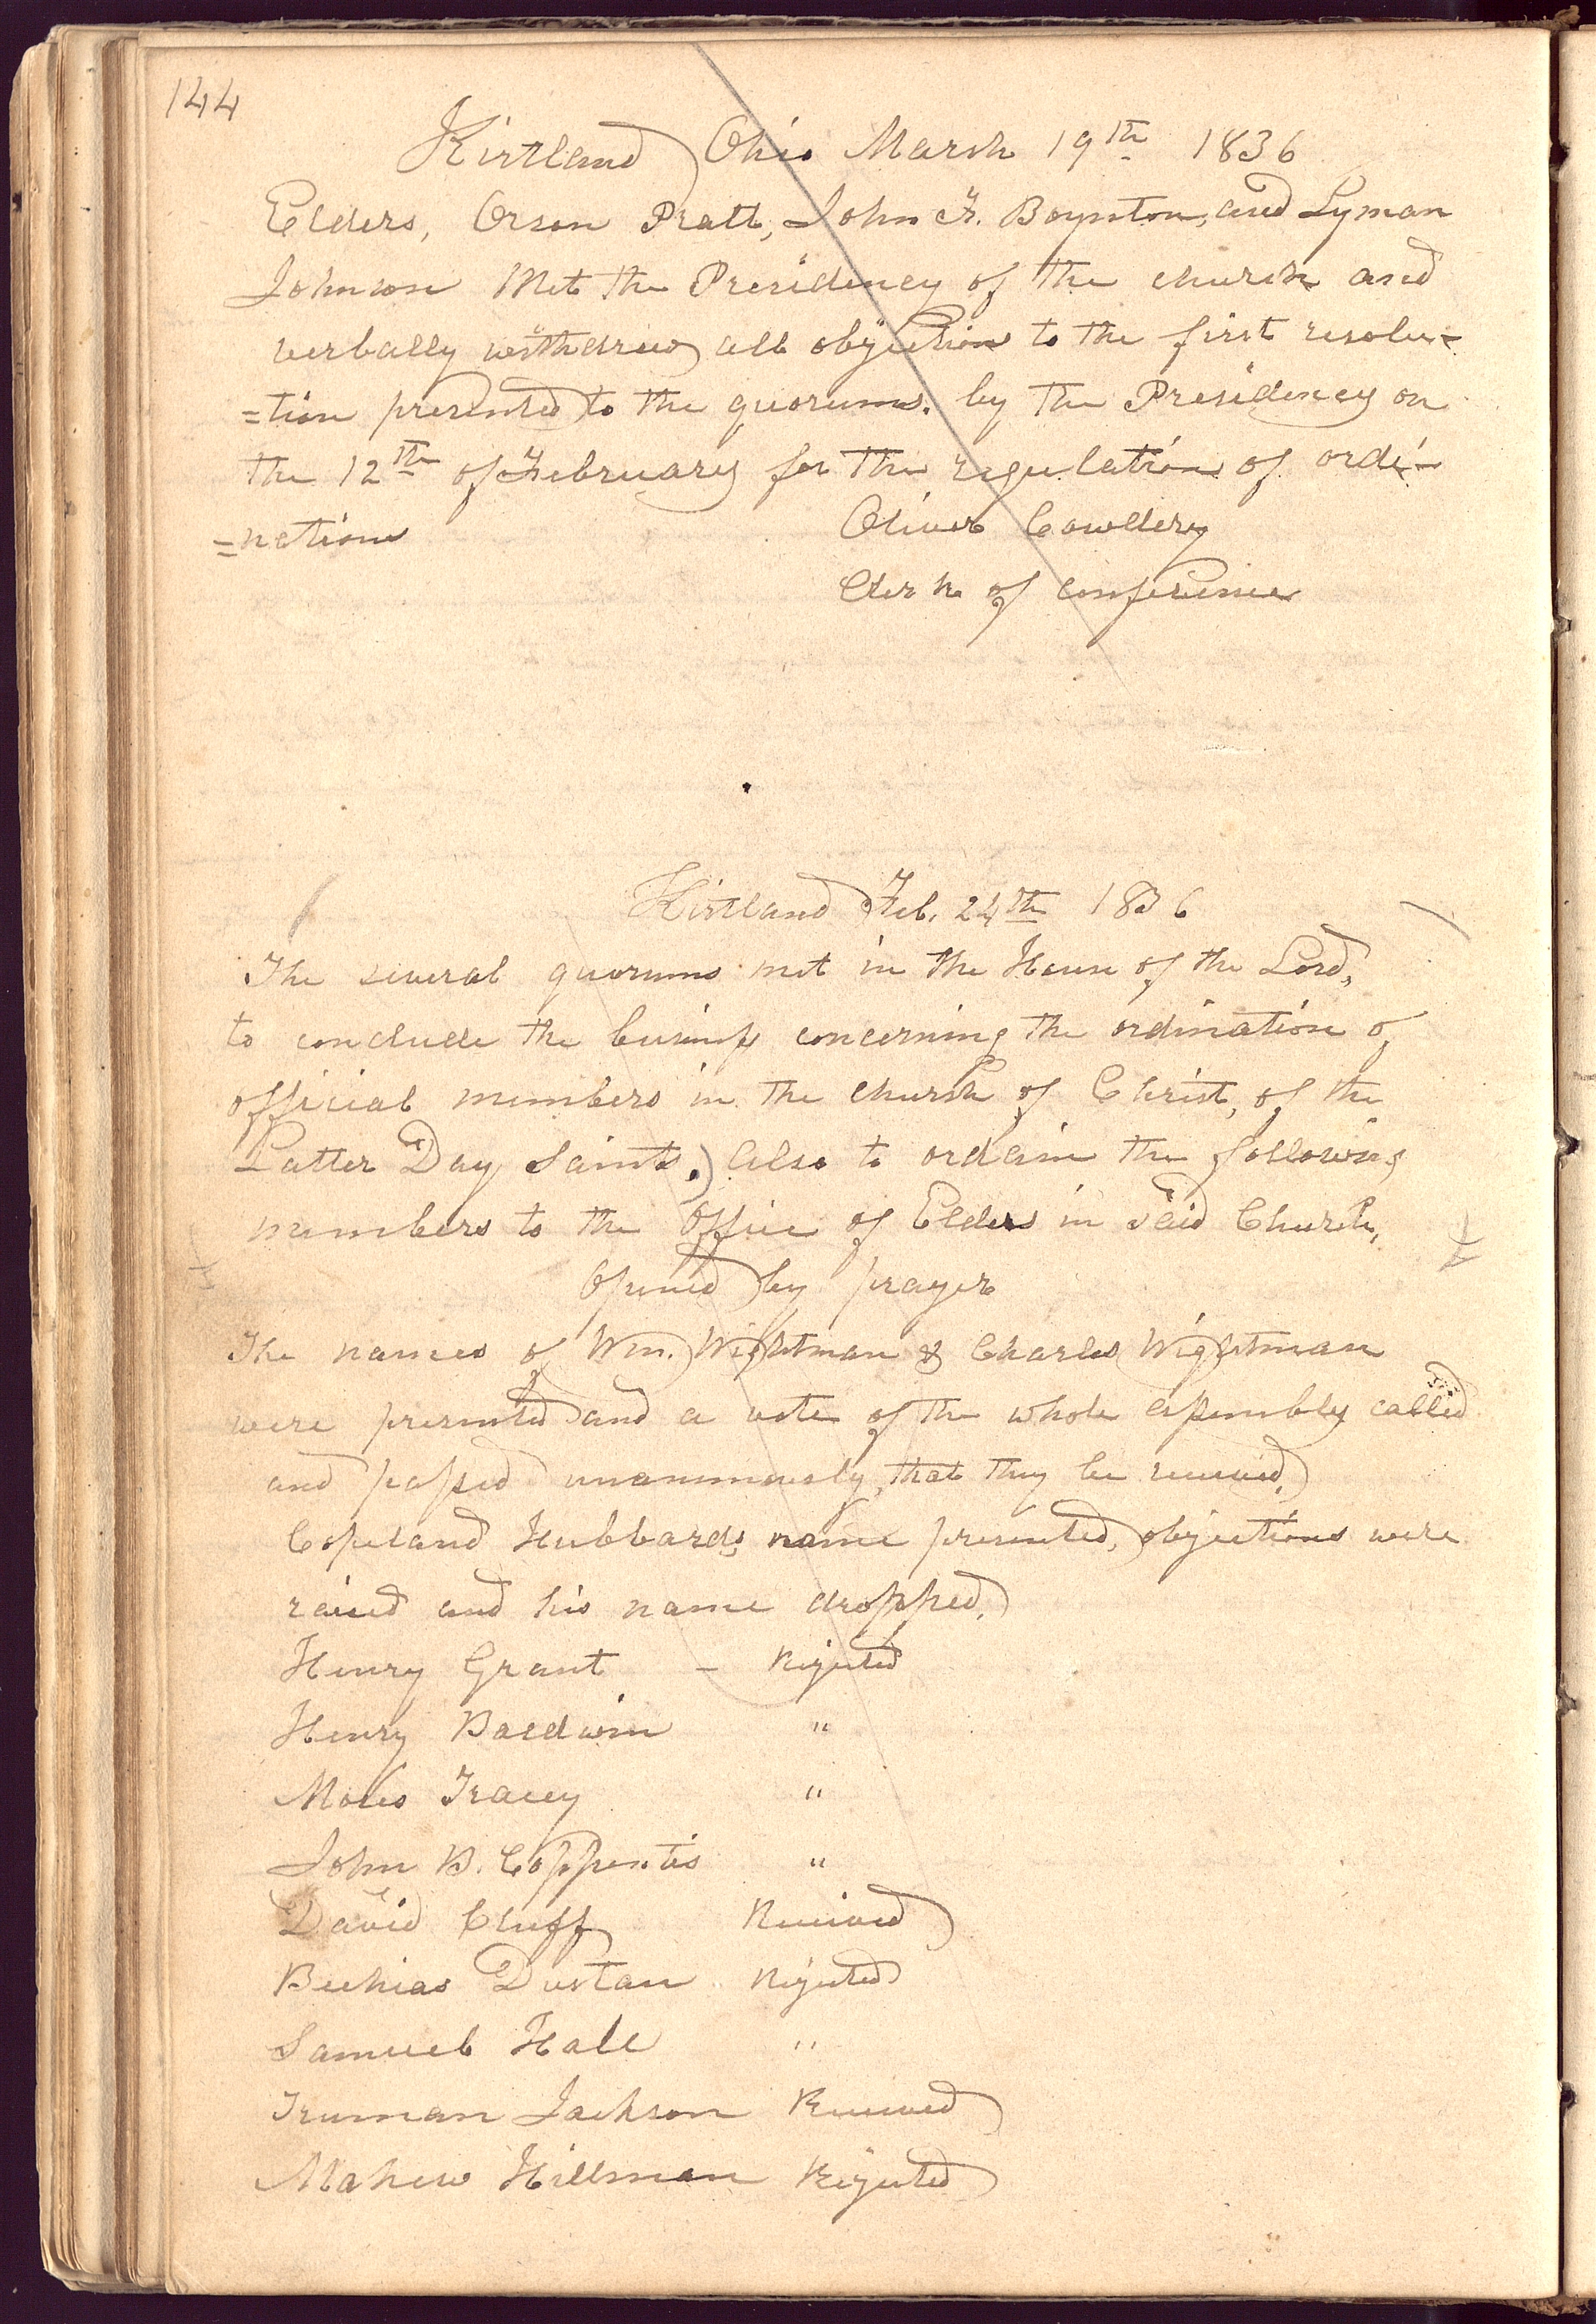 144
Kirtland Ohio March 19th 1836
Elders, Orson Pratt, John F. Boynton, and Lyman
Johnson Met the Presidency of the church and
verbally withdrew all objection to the first resolu-
=tion presented to the quorums. by the Presidency on
the 12th of February for the regulation of ordi-
=nation
Oliver Cowdery
Clerk of conference
Kirtland Feb. 24th 1836
The several quorums met in the House of the Lord,
to conclude the business concerning the ordination of
official members in the church of Christ, of the
Latter Day Saints. Also to ordain the following
members to the office of Elders in said Church,
Opened by prayer
The names of Wm. Wightman & Charles Wightman
were presented and a vote of the whole assembly called
and passed unanimously, that they be received.
Copeland Hubbards name presented, objections were
raised and his name dropped.
Henry Grant - Rejected
Henry Baldwin "
Moses Tracey "
John B. "
David Cluff Received
Dustan Rejected
Samuel Hale "
Truman Jackson Received
Mahew Hillman Rejected